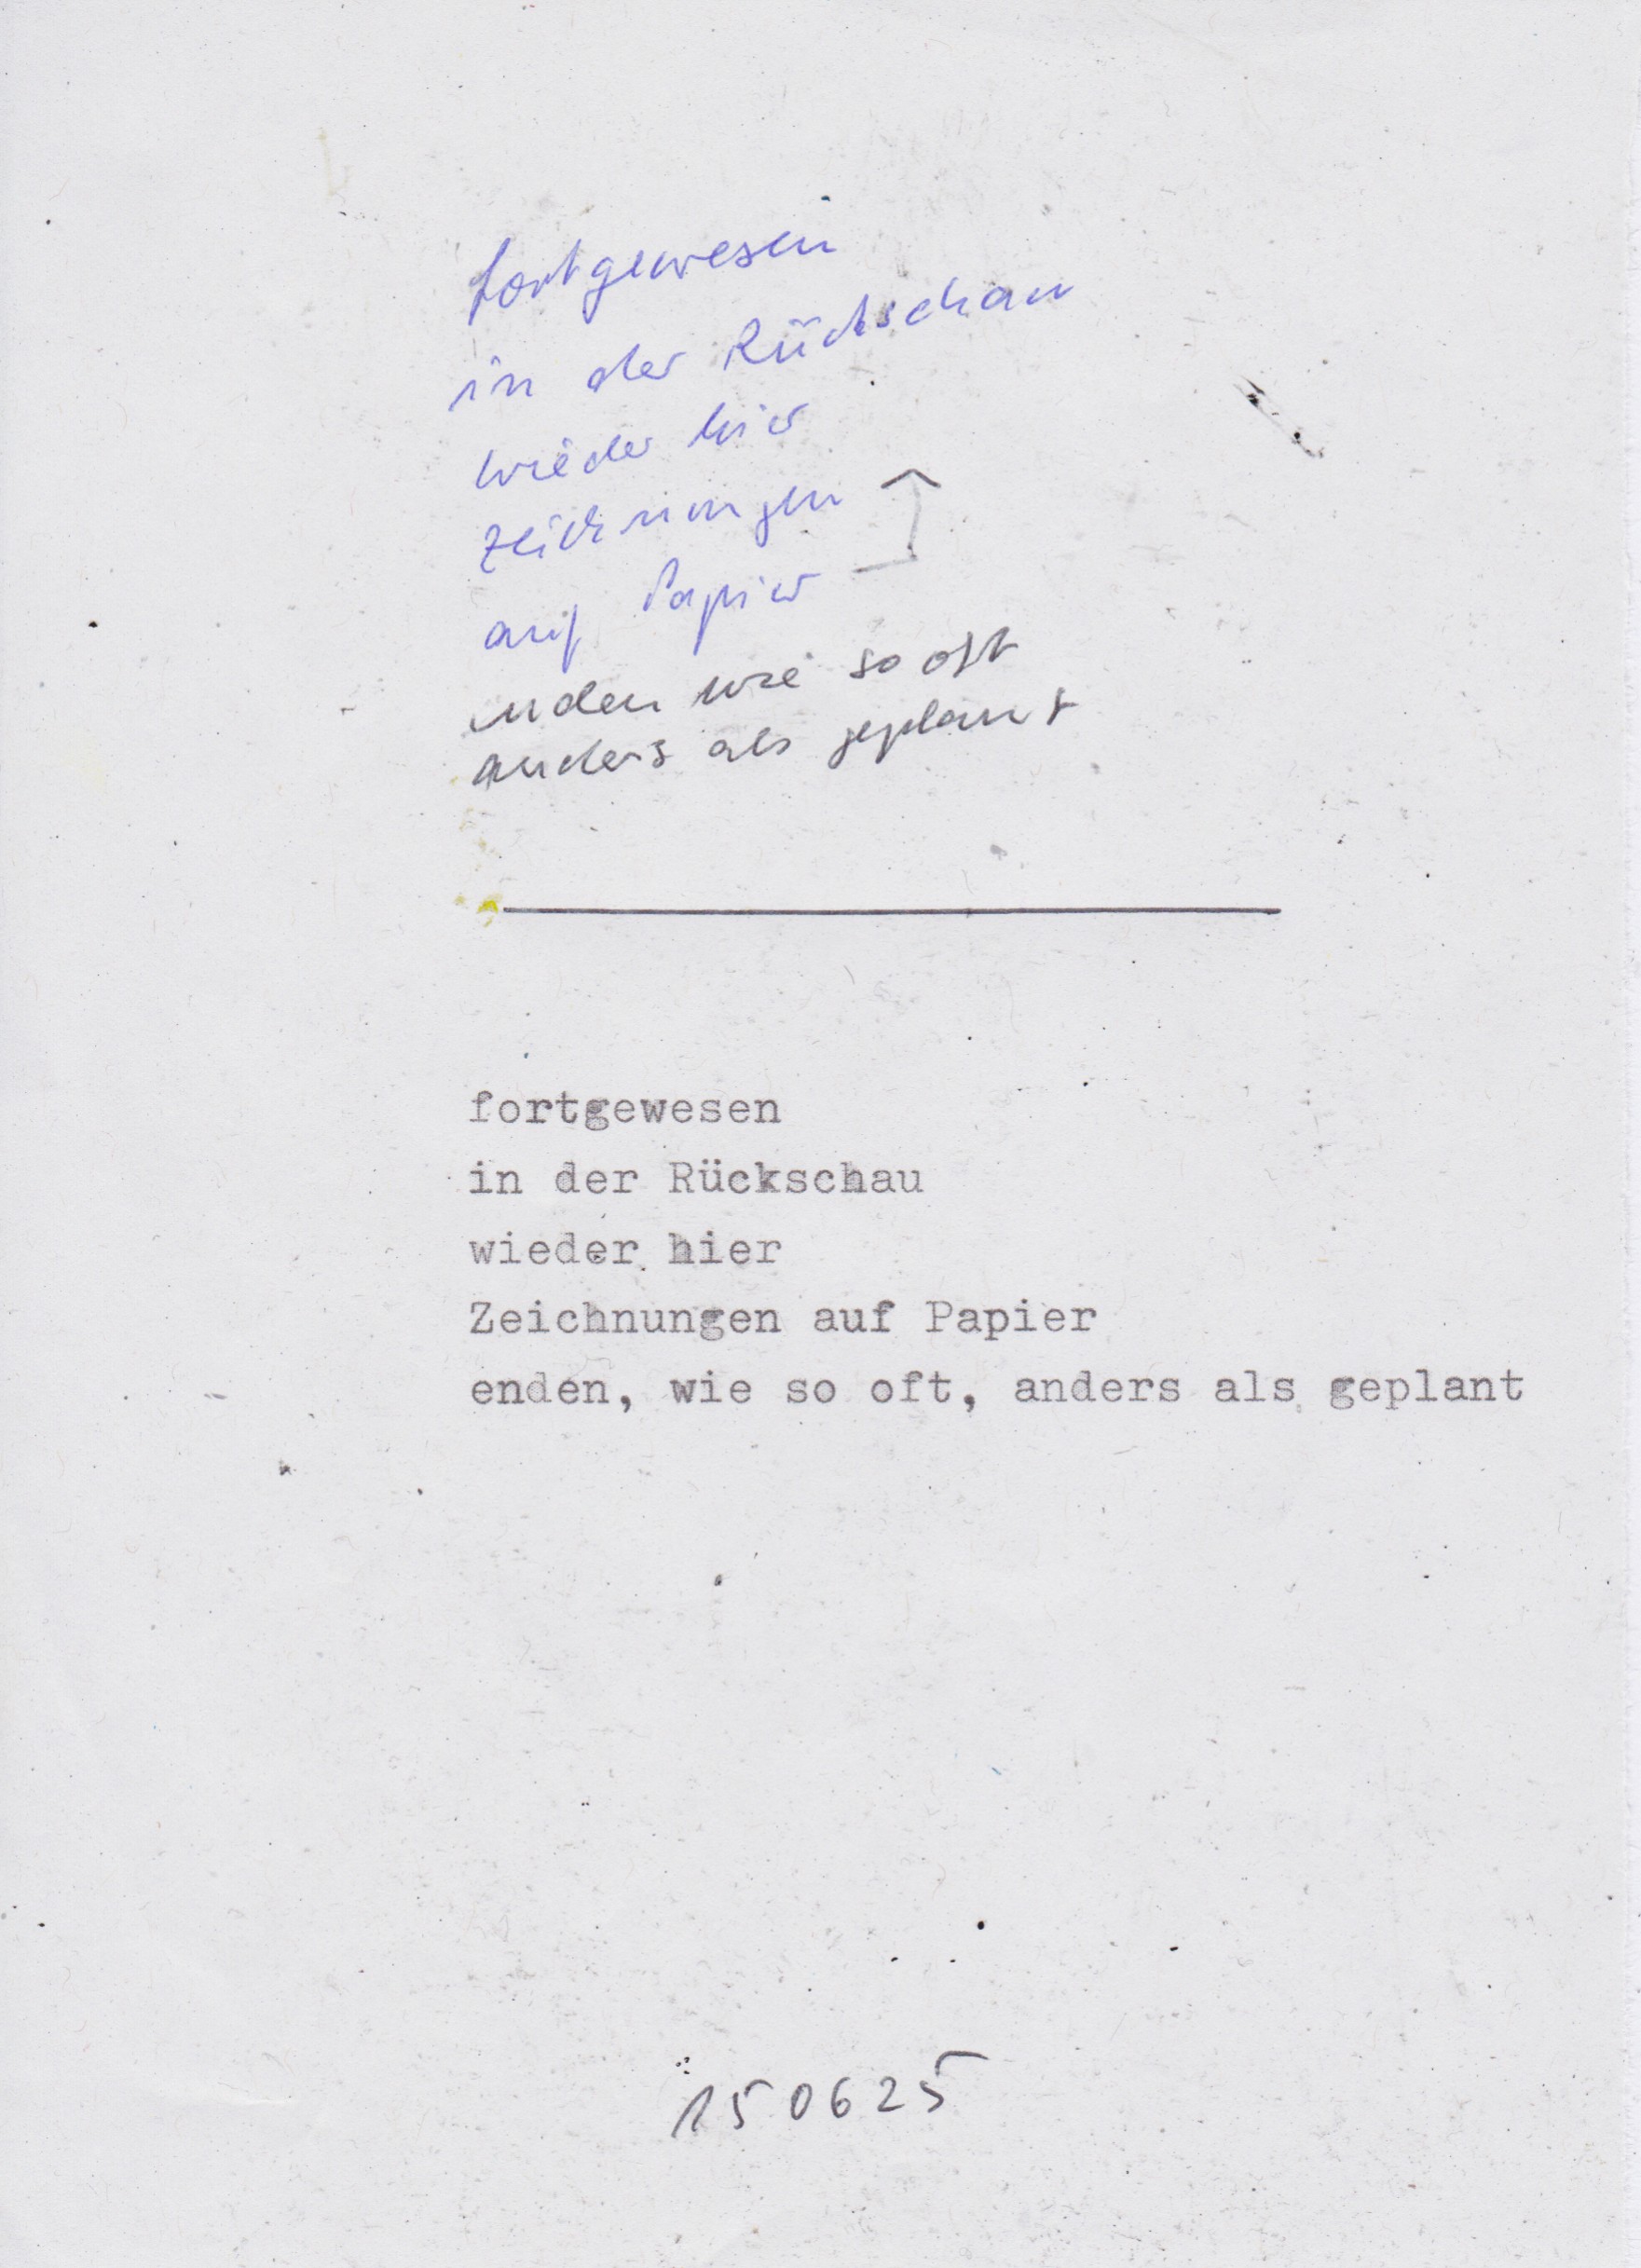 fortgewesen
in der Rückschau
wieder hier
Zeichnungen
auf Papier
enden wie so oft
anders als geplant
fortgewesen
in der Rückschau
wieder hier
Zeichnungen auf Papier
enden, wie so oft, anders als geplant
150625